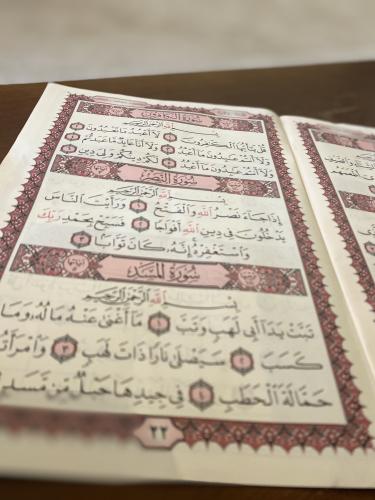 سُورَةُ الْكَافِرُونَ
بِسْمِ اللَّهِ الرَّحْمَٰنِ الرَّحِيمِ
قُلْ يَا أَيُّهَا الْكَافِرُونَ ١ لَا أَعْبُدُ مَا تَعْبُدُونَ ٢
وَلَا أَنْتُمْ عَابِدُونَ مَا أَعْبُدُ ٣ وَلَا أَنَا عَابِدٌ مَا عَبَدْتُمْ ٤
وَلَا أَنْتُمْ عَابِدُونَ مَا أَعْبُدُ ٥ لَكُمْ دِينُكُمْ وَلِيَ دِينِ ٦
سُورَةُ النَّصْرِ
بِسْمِ اللَّهِ الرَّحْمَٰنِ الرَّحِيمِ
إِذَا جَاءَ نَصْرُ اللَّهِ وَالْفَتْحُ ١ وَرَأَيْتَ النَّاسَ
يَدْخُلُونَ فِي دِينِ اللَّهِ أَفْوَاجًا ٢ فَسَبِّحْ بِحَمْدِ رَبِّكَ
وَاسْتَغْفِرْهُ إِنَّهُ كَانَ تَوَّابًا ٣
سُورَةُ الْمَسَدِ
بِسْمِ اللَّهِ الرَّحْمَٰنِ الرَّحِيمِ
تَبَّتْ يَدَا أَبِي لَهَبٍ وَتَبَّ ١ مَا أَغْنَىٰ عَنْهُ مَالُهُ وَمَا
كَسَبَ ٢ سَيَصْلَىٰ نَارًا ذَاتَ لَهَبٍ ٣ وَامْرَأَتُهُ
حَمَّالَةَ الْحَطَبِ ٤ فِي جِيدِهَا حَبْلٌ مِنْ مَسَدٍ
٢٢